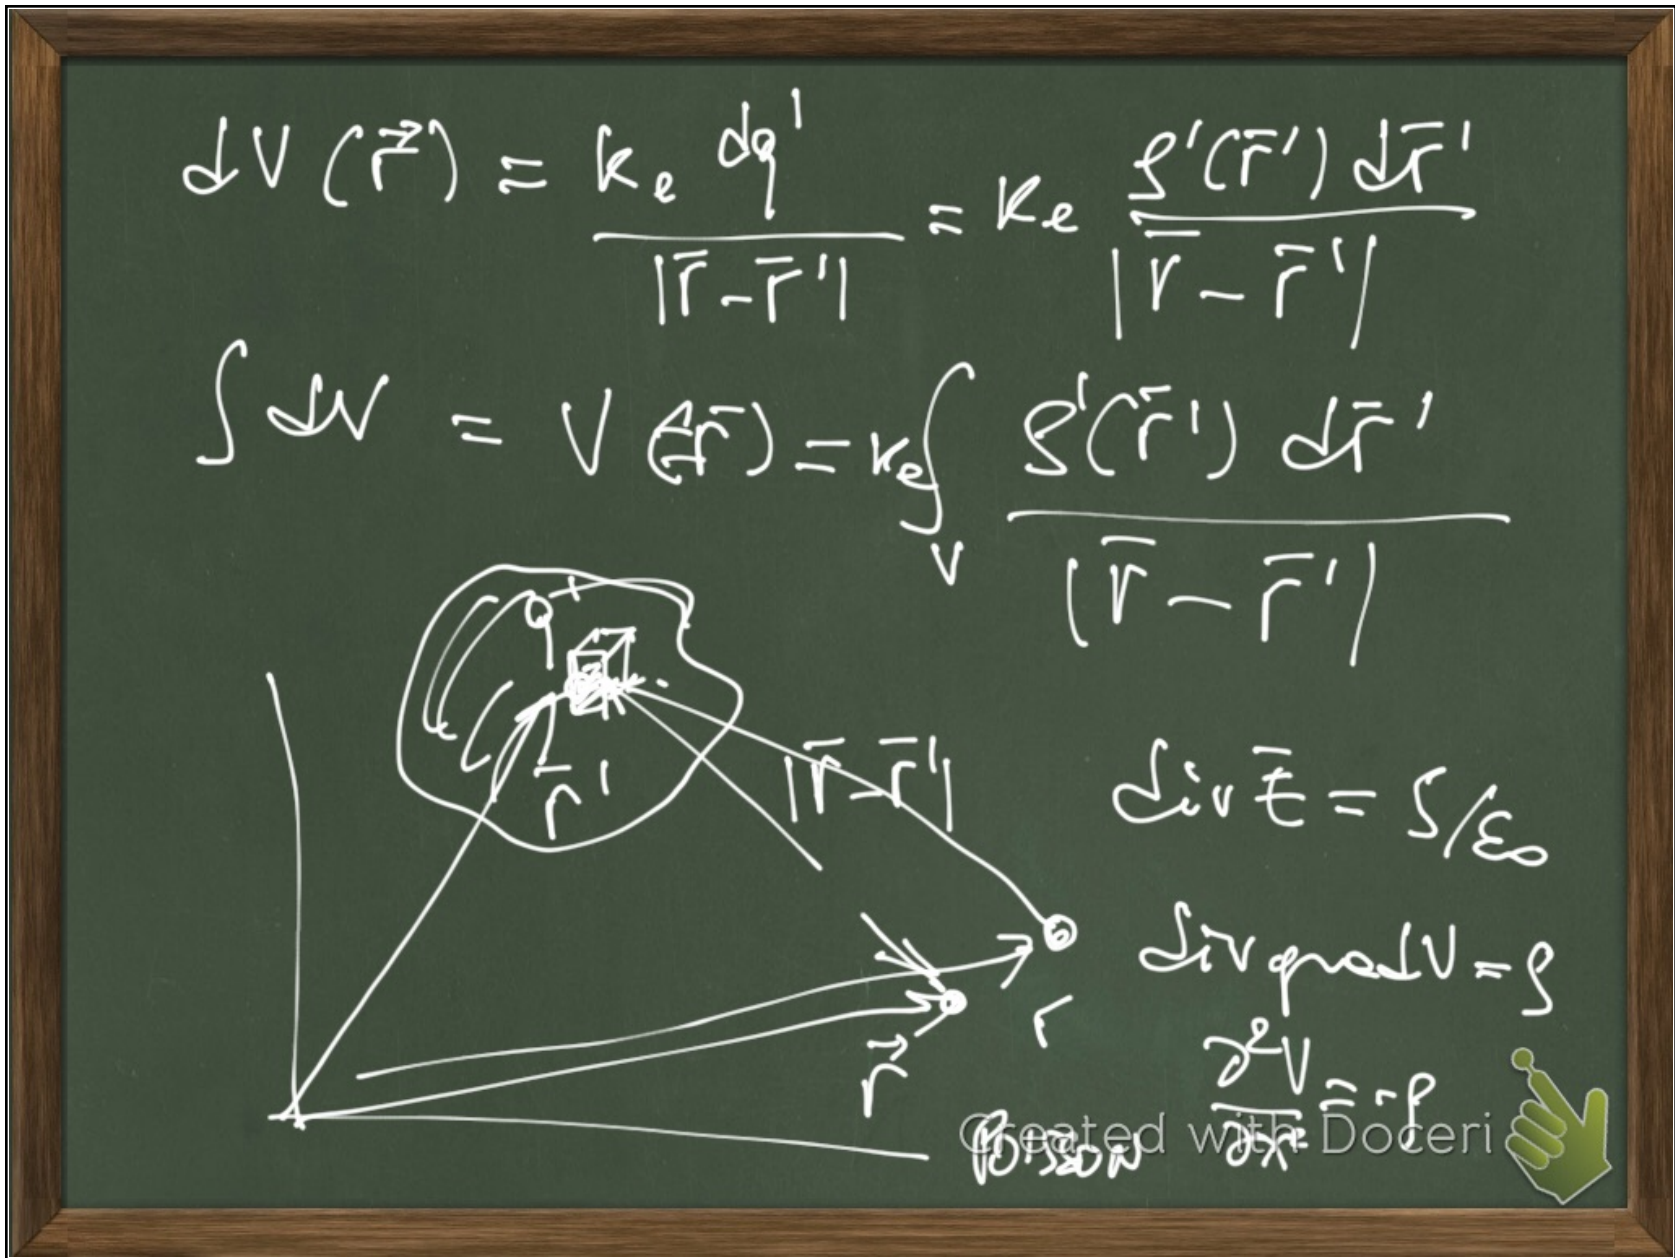 dV(r⃗) = kₑ dq' / |r̄ - r̄'| = Kₑ ρ'(r̄') dr̄' / |r̄ - r̄'|
∫ dV = V(r̄) = kₑ ∫_V ρ'(r̄') dr̄' / |r̄ - r̄'|
r̄'
|r̄ - r̄'|
div Ē = ρ/ε₀
div grad V = ρ
r
r⃗
∂²V / ∂x² = -ρ
POISSON
Created with Doceri